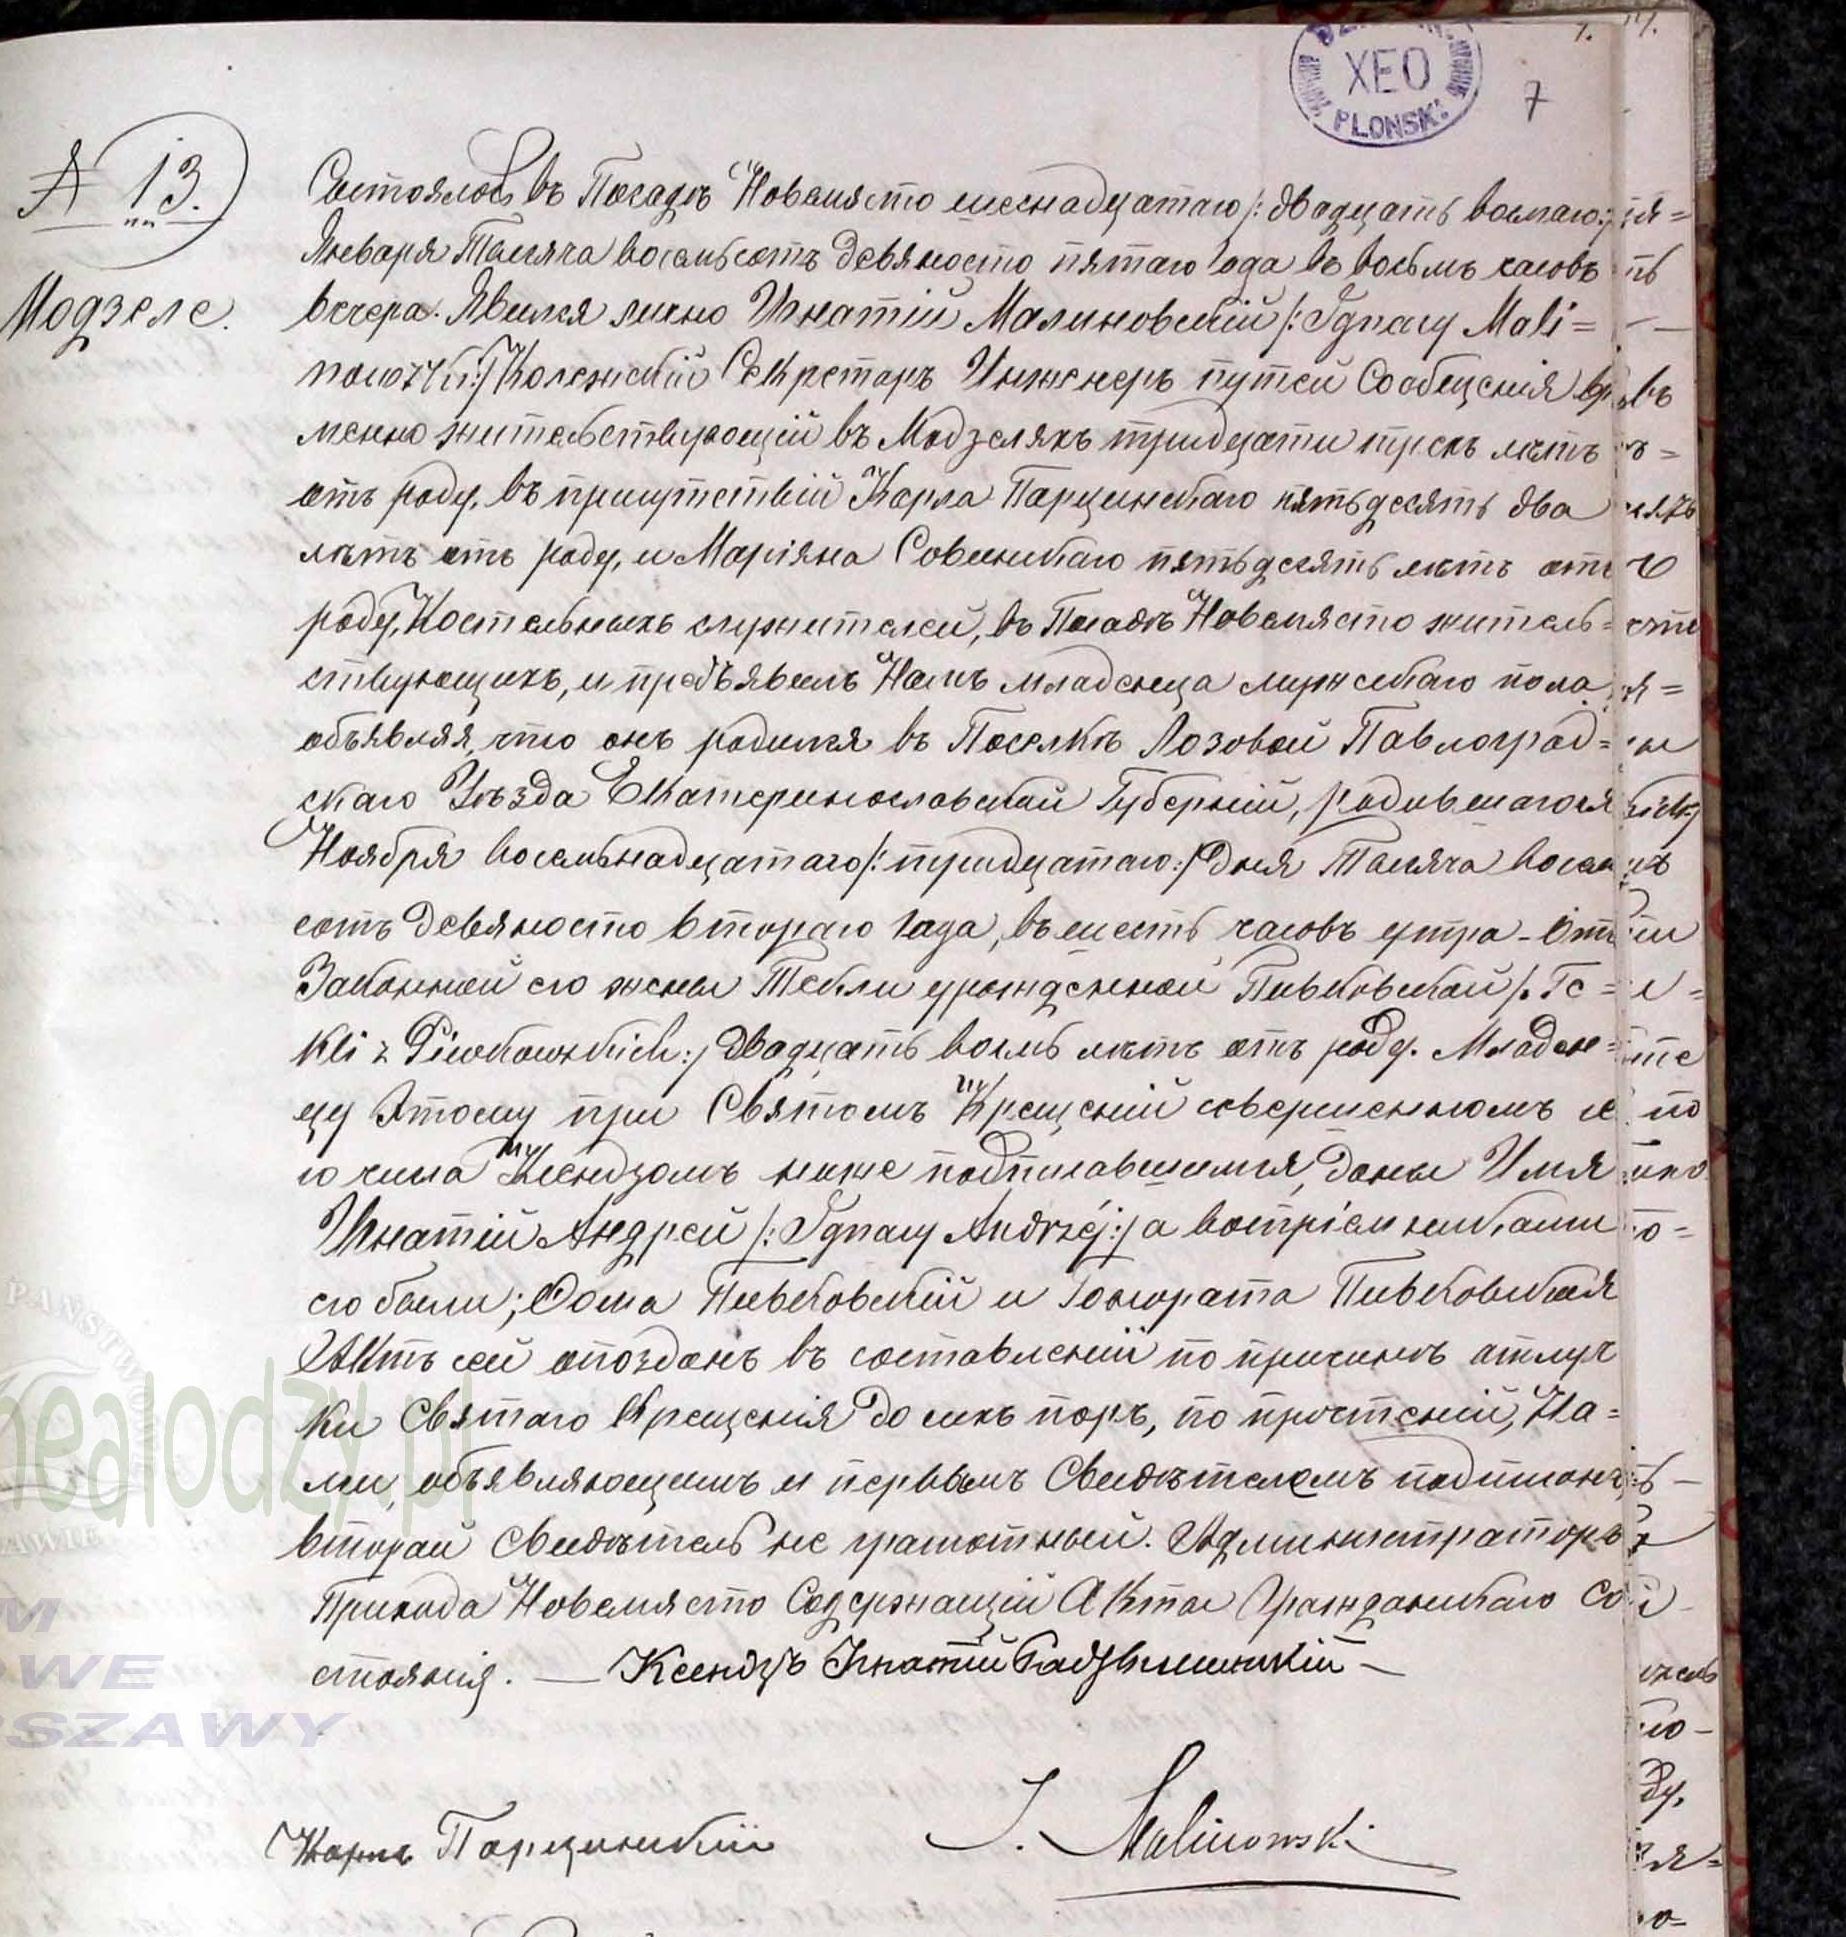 XEO
PLONSK
7
№ 13.
Модзеле.
Состоялось въ Посадѣ Новемясто шеснадцатаго /: двадцать восмаго :/
Января Тысяча восемьсотъ девяносто пятаго года въ восьмъ часовъ
вечера. Явился лично Игнатій Малиновскій /: Ignacy Mali=
nowski :/ Колежскій Секретарь Инженеръ путей Сообщенія вре
менно жительствующій въ Модзеляхъ тридцати трехъ лѣтъ
отъ роду, въ присутствіи Карла Парцинскаго пятьдесятъ два
лѣтъ отъ роду, и Маріяна Совинскаго пятьдесятъ лѣтъ отъ
роду, Костельныхъ служителей, въ Посадѣ Новемясто житель=
ствующихъ, и предъявилъ Намъ младенца мужескаго пола,
объявляя, что онъ родился въ Поселкѣ Лозовой Павлоград=
скаго Уѣзда Екатеринославской Губерніи, родившагося
Ноября восемьнадцатаго /: тридцатаго :/ дня Тысяча восемь
сотъ девяносто втораго года, въ шесть часовъ утра - Отъ
Законной его жены Текли урожденной Пивковской /: Te=
kli z Piwkowskich :/ двадцать восмь лѣтъ отъ роду. Младен=
цу Этому при Святомъ Крещеніи совершенномъ се
го числа Ксендзомъ ниже подписавшимся, даны Имя
Игнатій Андрей /: Ignacy Andrzéj :/ а воспріемниками
его были; Фома Пивковскій и Гонората Пивковская
Актъ сей опозданъ въ составленіи по причинѣ отлуч
ки Святаго Крещенія до сихъ поръ, по прочтеніи, На=
ми, объявляющимъ и первымъ Свидѣтелемъ подписанъ,
второй свидѣтель не грамотный. Администраторъ
Прихода Новемясто Содержащій Акты Гражданскаго Со
стоянія. — Ксендзъ Игнатій —
Карлъ Парцинскій
I. Malinowski
PAŃSTWOWE
nealodzy.pl
M
OWE
RSZAWY